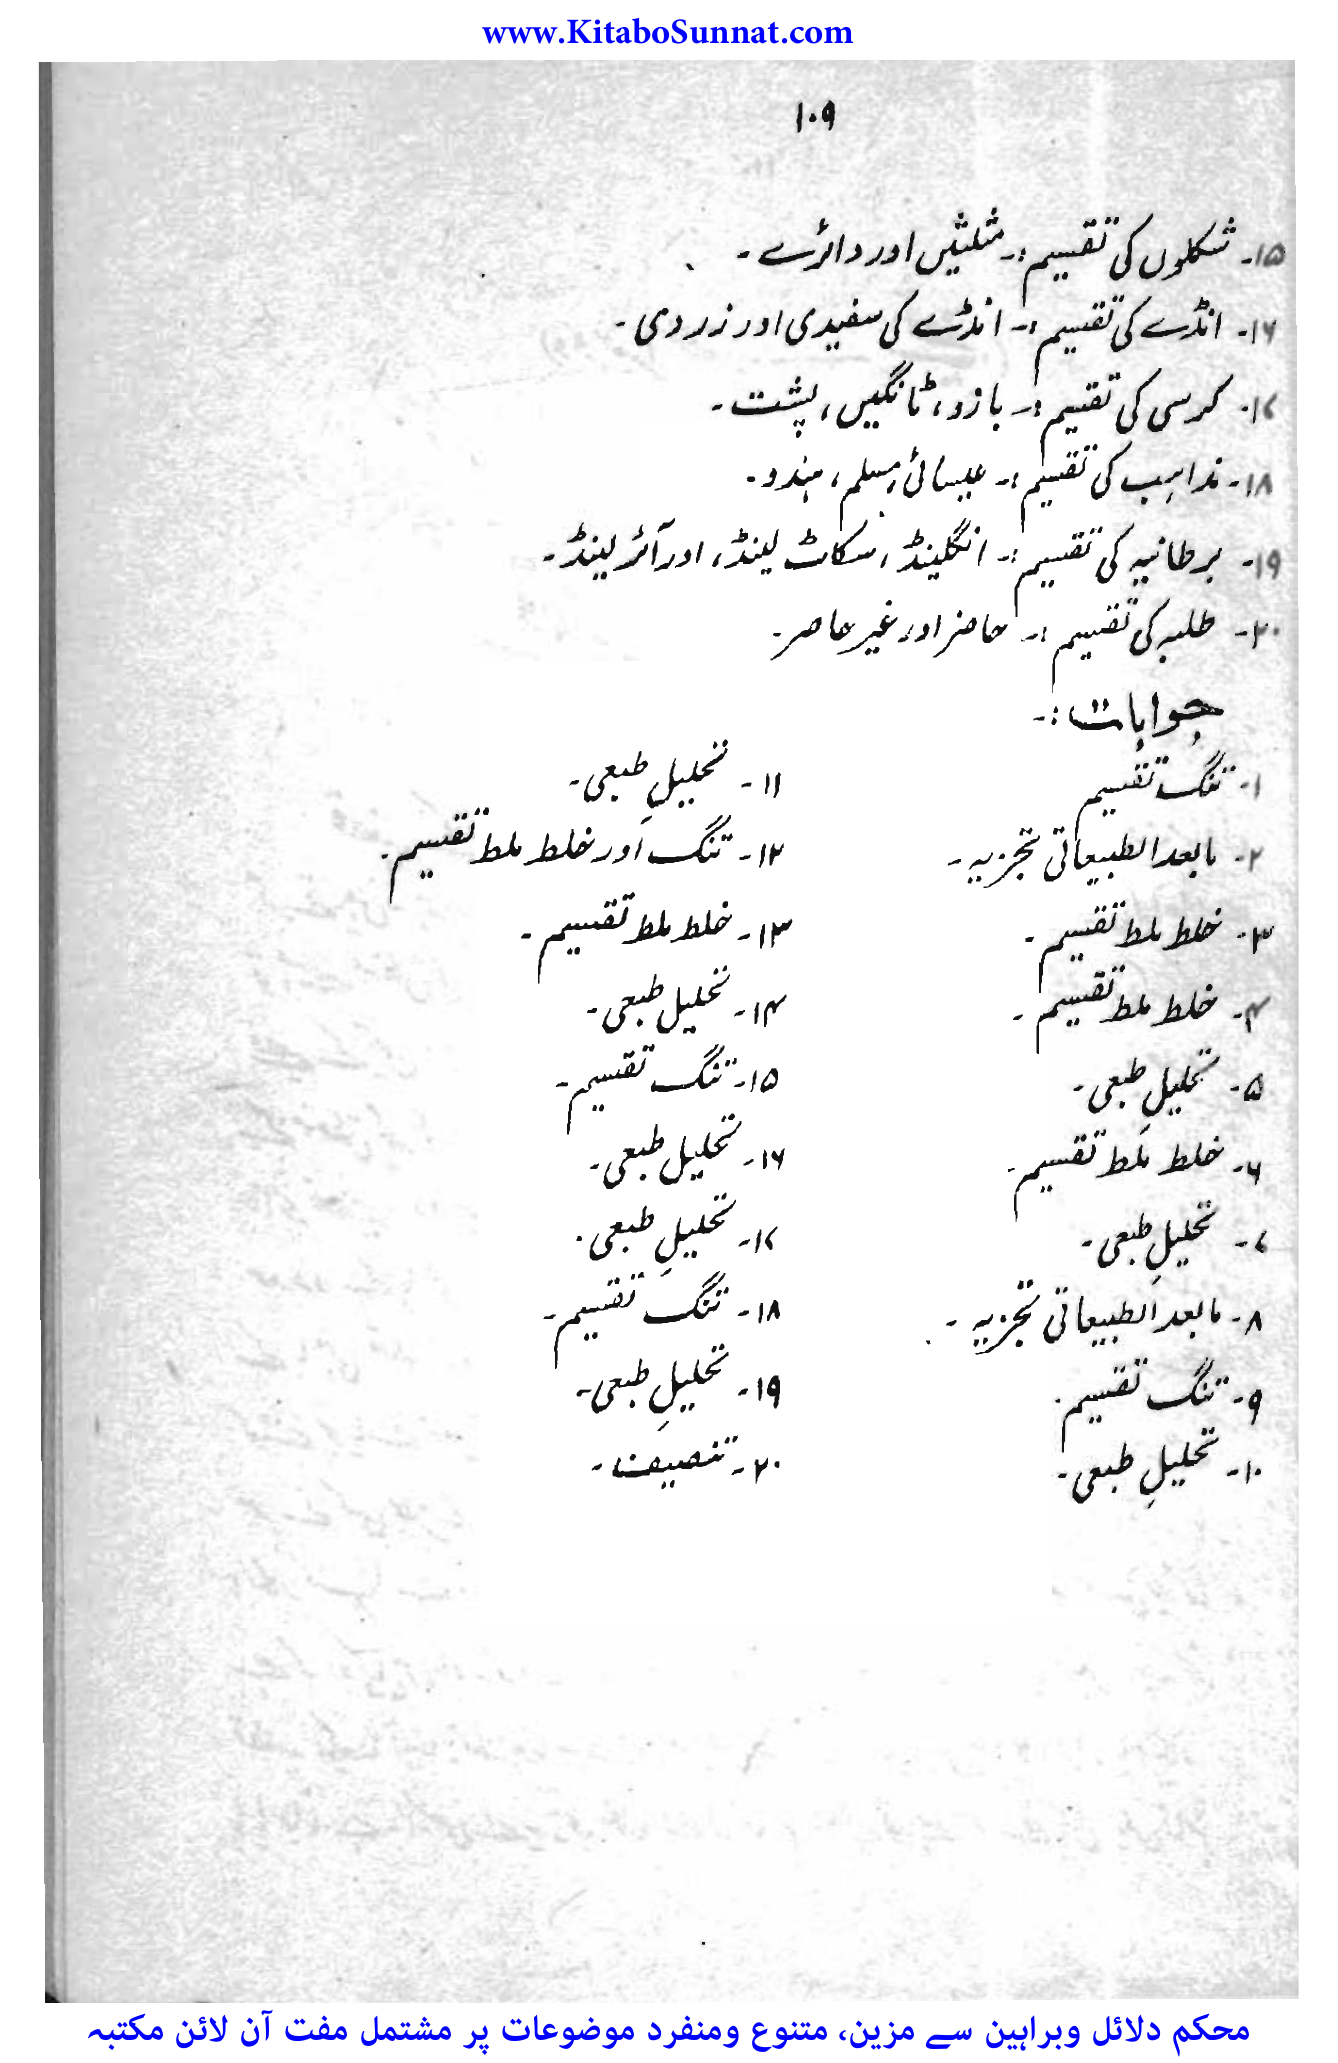 www.KitaboSunnat.com
۱۰۹
۱۵۔ شکلوں کی تقسیم :۔ مثلثیں اور دائرے ۔
۱۶۔ انڈے کی تقسیم :۔ انڈے کی سفیدی اور زردی ۔
۱۷۔ کرسی کی تقسیم :۔ بازو، ٹانگیں، پشت ۔
۱۸۔ مذاہب کی تقسیم :۔ عیسائی، مسلم، ہندو ۔
۱۹۔ برطانیہ کی تقسیم :۔ انگلینڈ، سکاٹ لینڈ، اور آئرلینڈ ۔
۲۰۔ طلبہ کی تقسیم :۔ حاضر اور غیر حاضر ۔
جوابات :۔
۱۔ تنگ تقسیم
۲۔ مابعد الطبیعاتی تجزیہ ۔
۳۔ خلط ملط تقسیم ۔
۴۔ خلط ملط تقسیم ۔
۵۔ تحلیلِ طبعی ۔
۶۔ خلط ملط تقسیم ۔
۷۔ تحلیلِ طبعی ۔
۸۔ مابعد الطبیعاتی تجزیہ ۔
۹۔ تنگ تقسیم ۔
۱۰۔ تحلیلِ طبعی ۔
۱۱۔ تحلیلِ طبعی ۔
۱۲۔ تنگ اور خلط ملط تقسیم ۔
۱۳۔ خلط ملط تقسیم ۔
۱۴۔ تحلیل طبعی ۔
۱۵۔ تنگ تقسیم ۔
۱۶۔ تحلیل طبعی ۔
۱۷۔ تحلیلِ طبعی ۔
۱۸۔ تنگ تقسیم ۔
۱۹۔ تحلیلِ طبعی ۔
۲۰۔ تنصیف ۔
محکم دلائل وبراہین سے مزین، متنوع ومنفرد موضوعات پر مشتمل مفت آن لائن مکتبہ